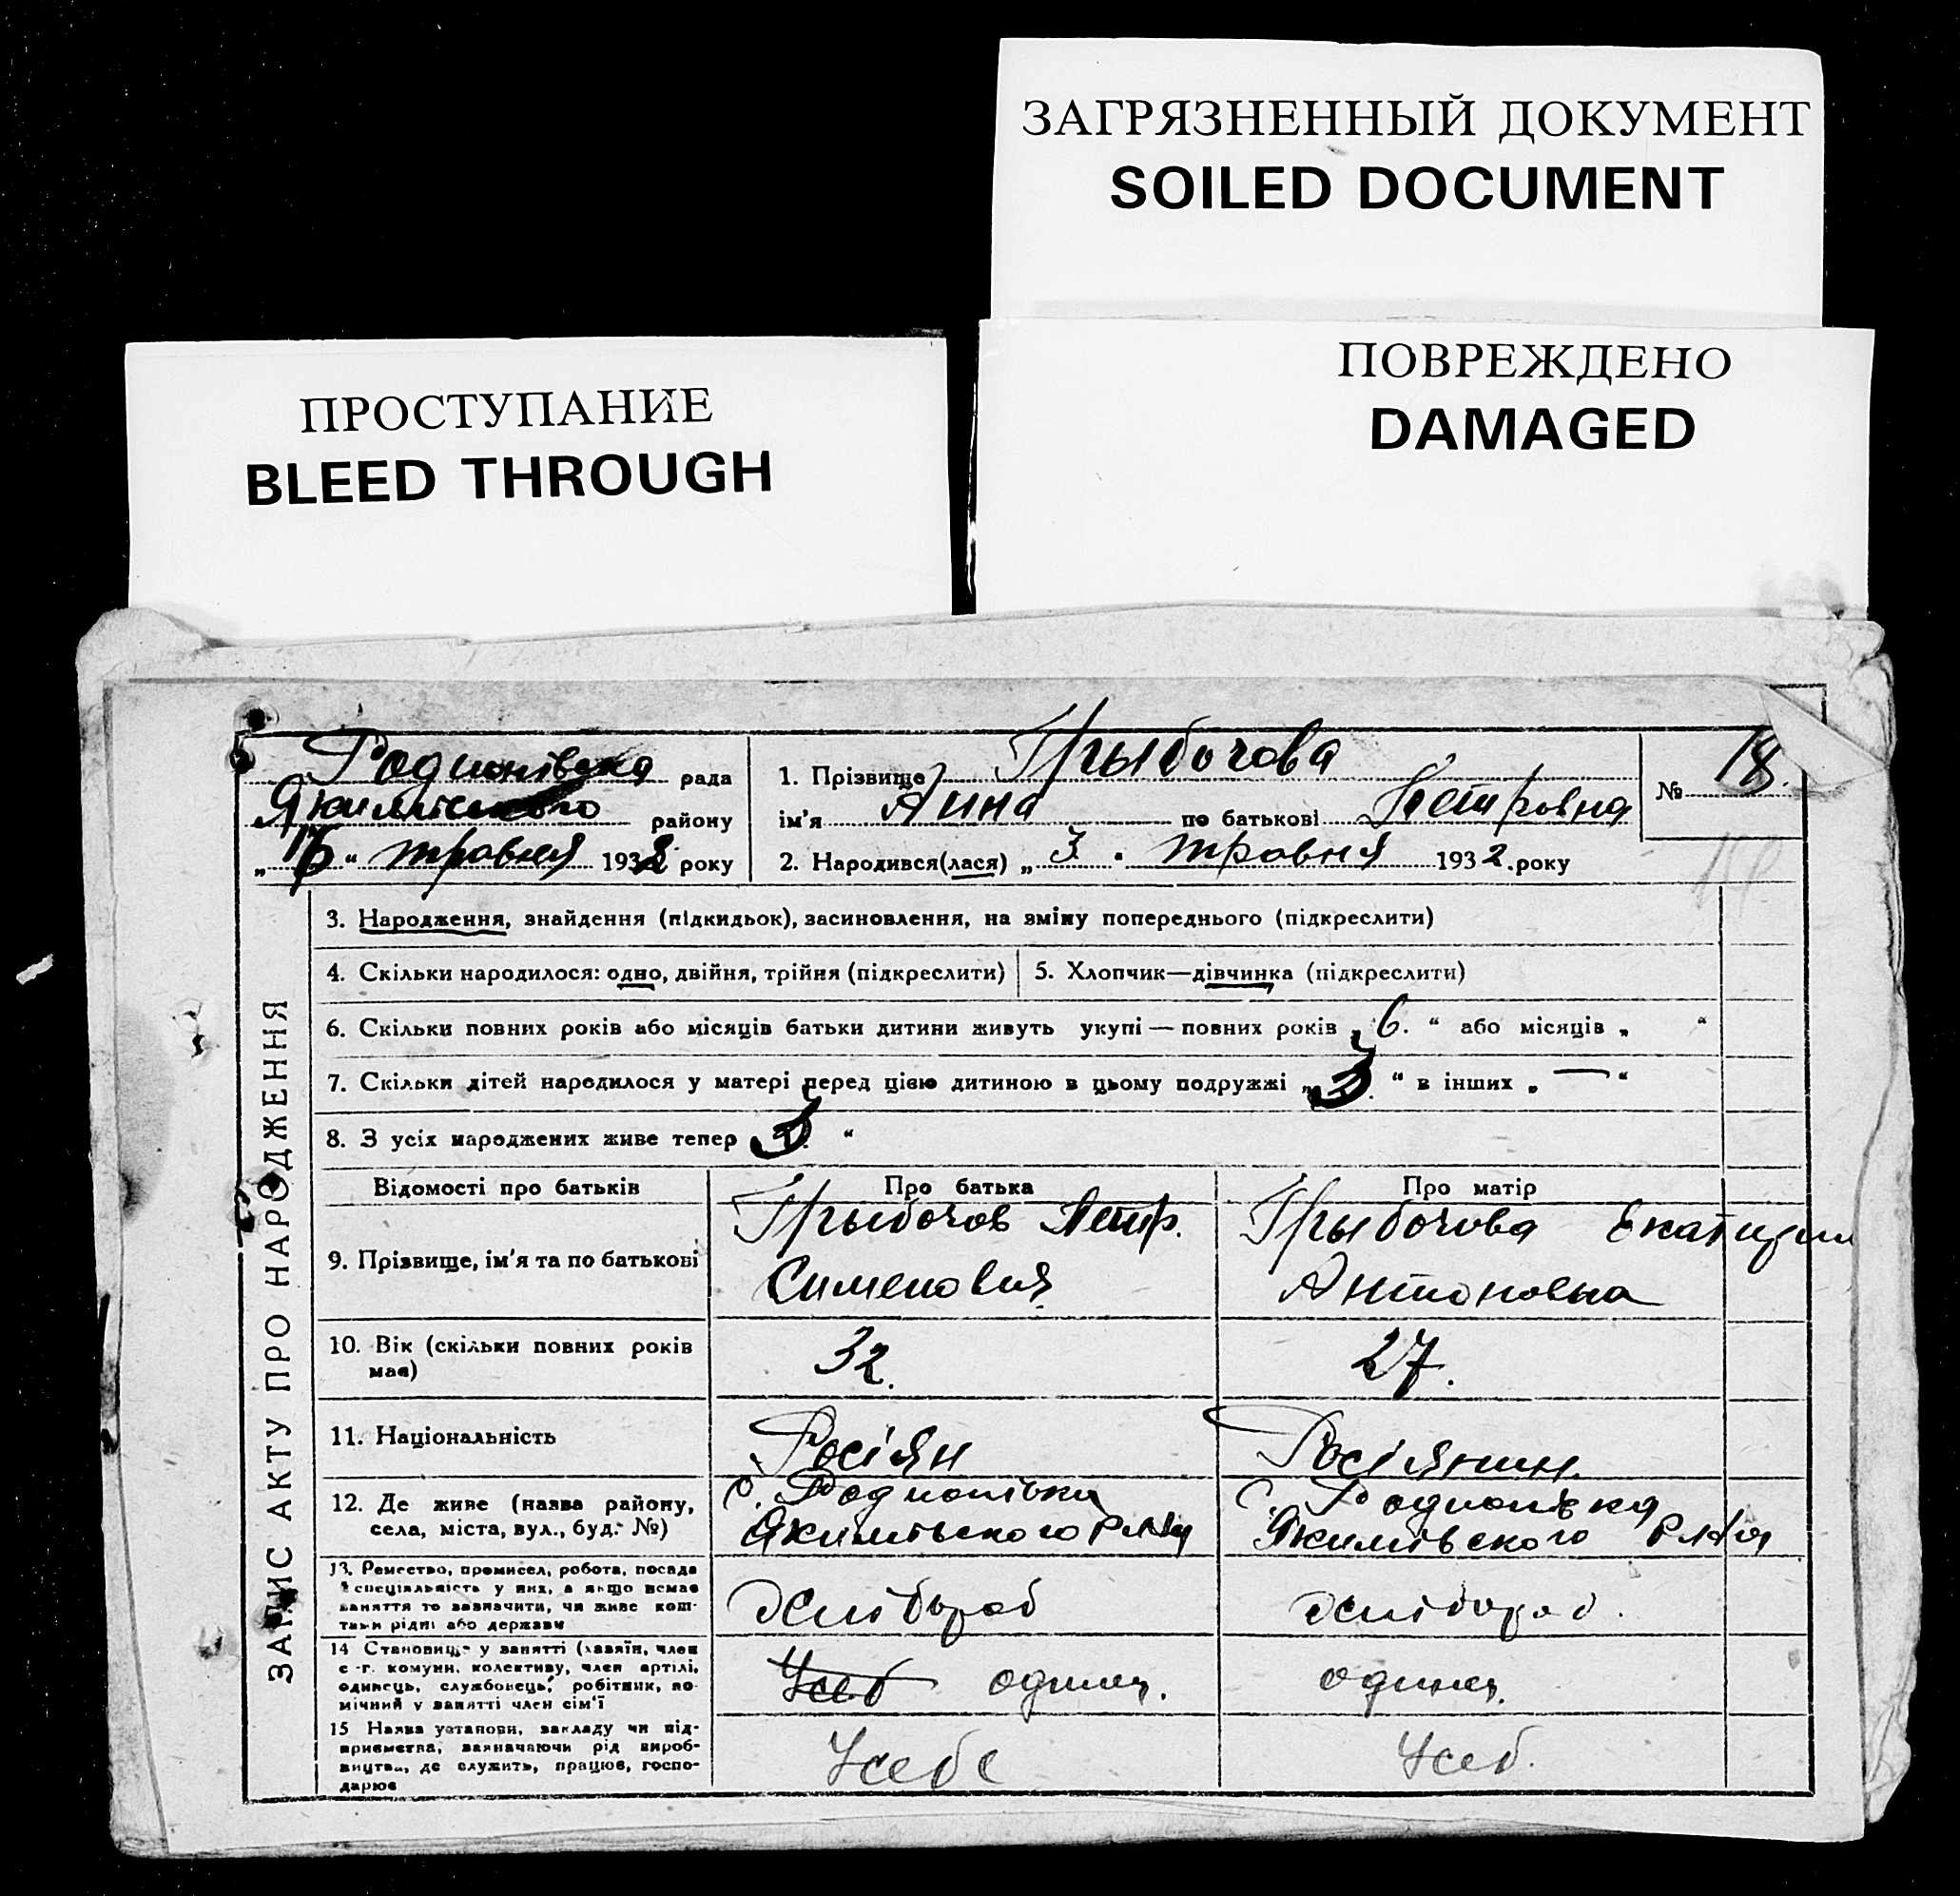 ЗАГРЯЗНЕННЫЙ ДОКУМЕНТ
SOILED DOCUMENT
ПОВРЕЖДЕНО
DAMAGED
ПРОСТУПАНИЕ
BLEED THROUGH
ЗАПИС АКТУ ПРО НАРОДЖЕННЯ
Родионівська рада
Якимівського району
„ “ травня 1932 року
1. Прізвище Грыбочова
ім'я Анна по батькові Петровна
№ 18.
2. Народився(лася) „ 3 “ травня 1932. року
3. Народження, знайдення (підкидьок), засиновлення, на зміну попереднього (підкреслити)
4. Скільки народилося: одно, двійня, трійня (підкреслити)
5. Хлопчик—дівчинка (підкреслити)
6. Скільки повних років або місяців батьки дитини живуть укупі — повних років „ 6. “ або місяців „ “
7. Скільки дітей народилося у матері перед цією дитиною в цьому подружжі „ 3. “ в інших „ — “
8. З усіх народжених живе тепер 3. “
Відомості про батьків Про батька Про матір
9. Прізвище, ім'я та по батькові
Грыбочов Петр.
Сименович
Грыбочова Екатирин
Антоновна
10. Вік (скільки повних років має)
32.
27.
11. Національність
Росіян
Росіянин.
12. Де живе (назва району,
села, міста, вул., буд. №)
с. Родионівка
Якимівського р-на
с. Родионівка
Якимівського р-на
13. Ремество, промисел, робота, посада
і спеціяльність у них, а якщо немає
заняття то зазначити, чи живе кош-
тами рідні або держави
хлібороб
хлібороб.
14 Становище у занятті (хазяїн, член
с.-г. комуни, колективу, член артілі,
одинець, службовець, робітник, по-
мічний у занятті член сім'ї
Усеб одинец.
одинец.
15 Назва установи, закладу чи під-
приємства, зазначаючи рід вироб-
ництва, де служить, працює, госпо-
дарює
Усебе
Усеб.